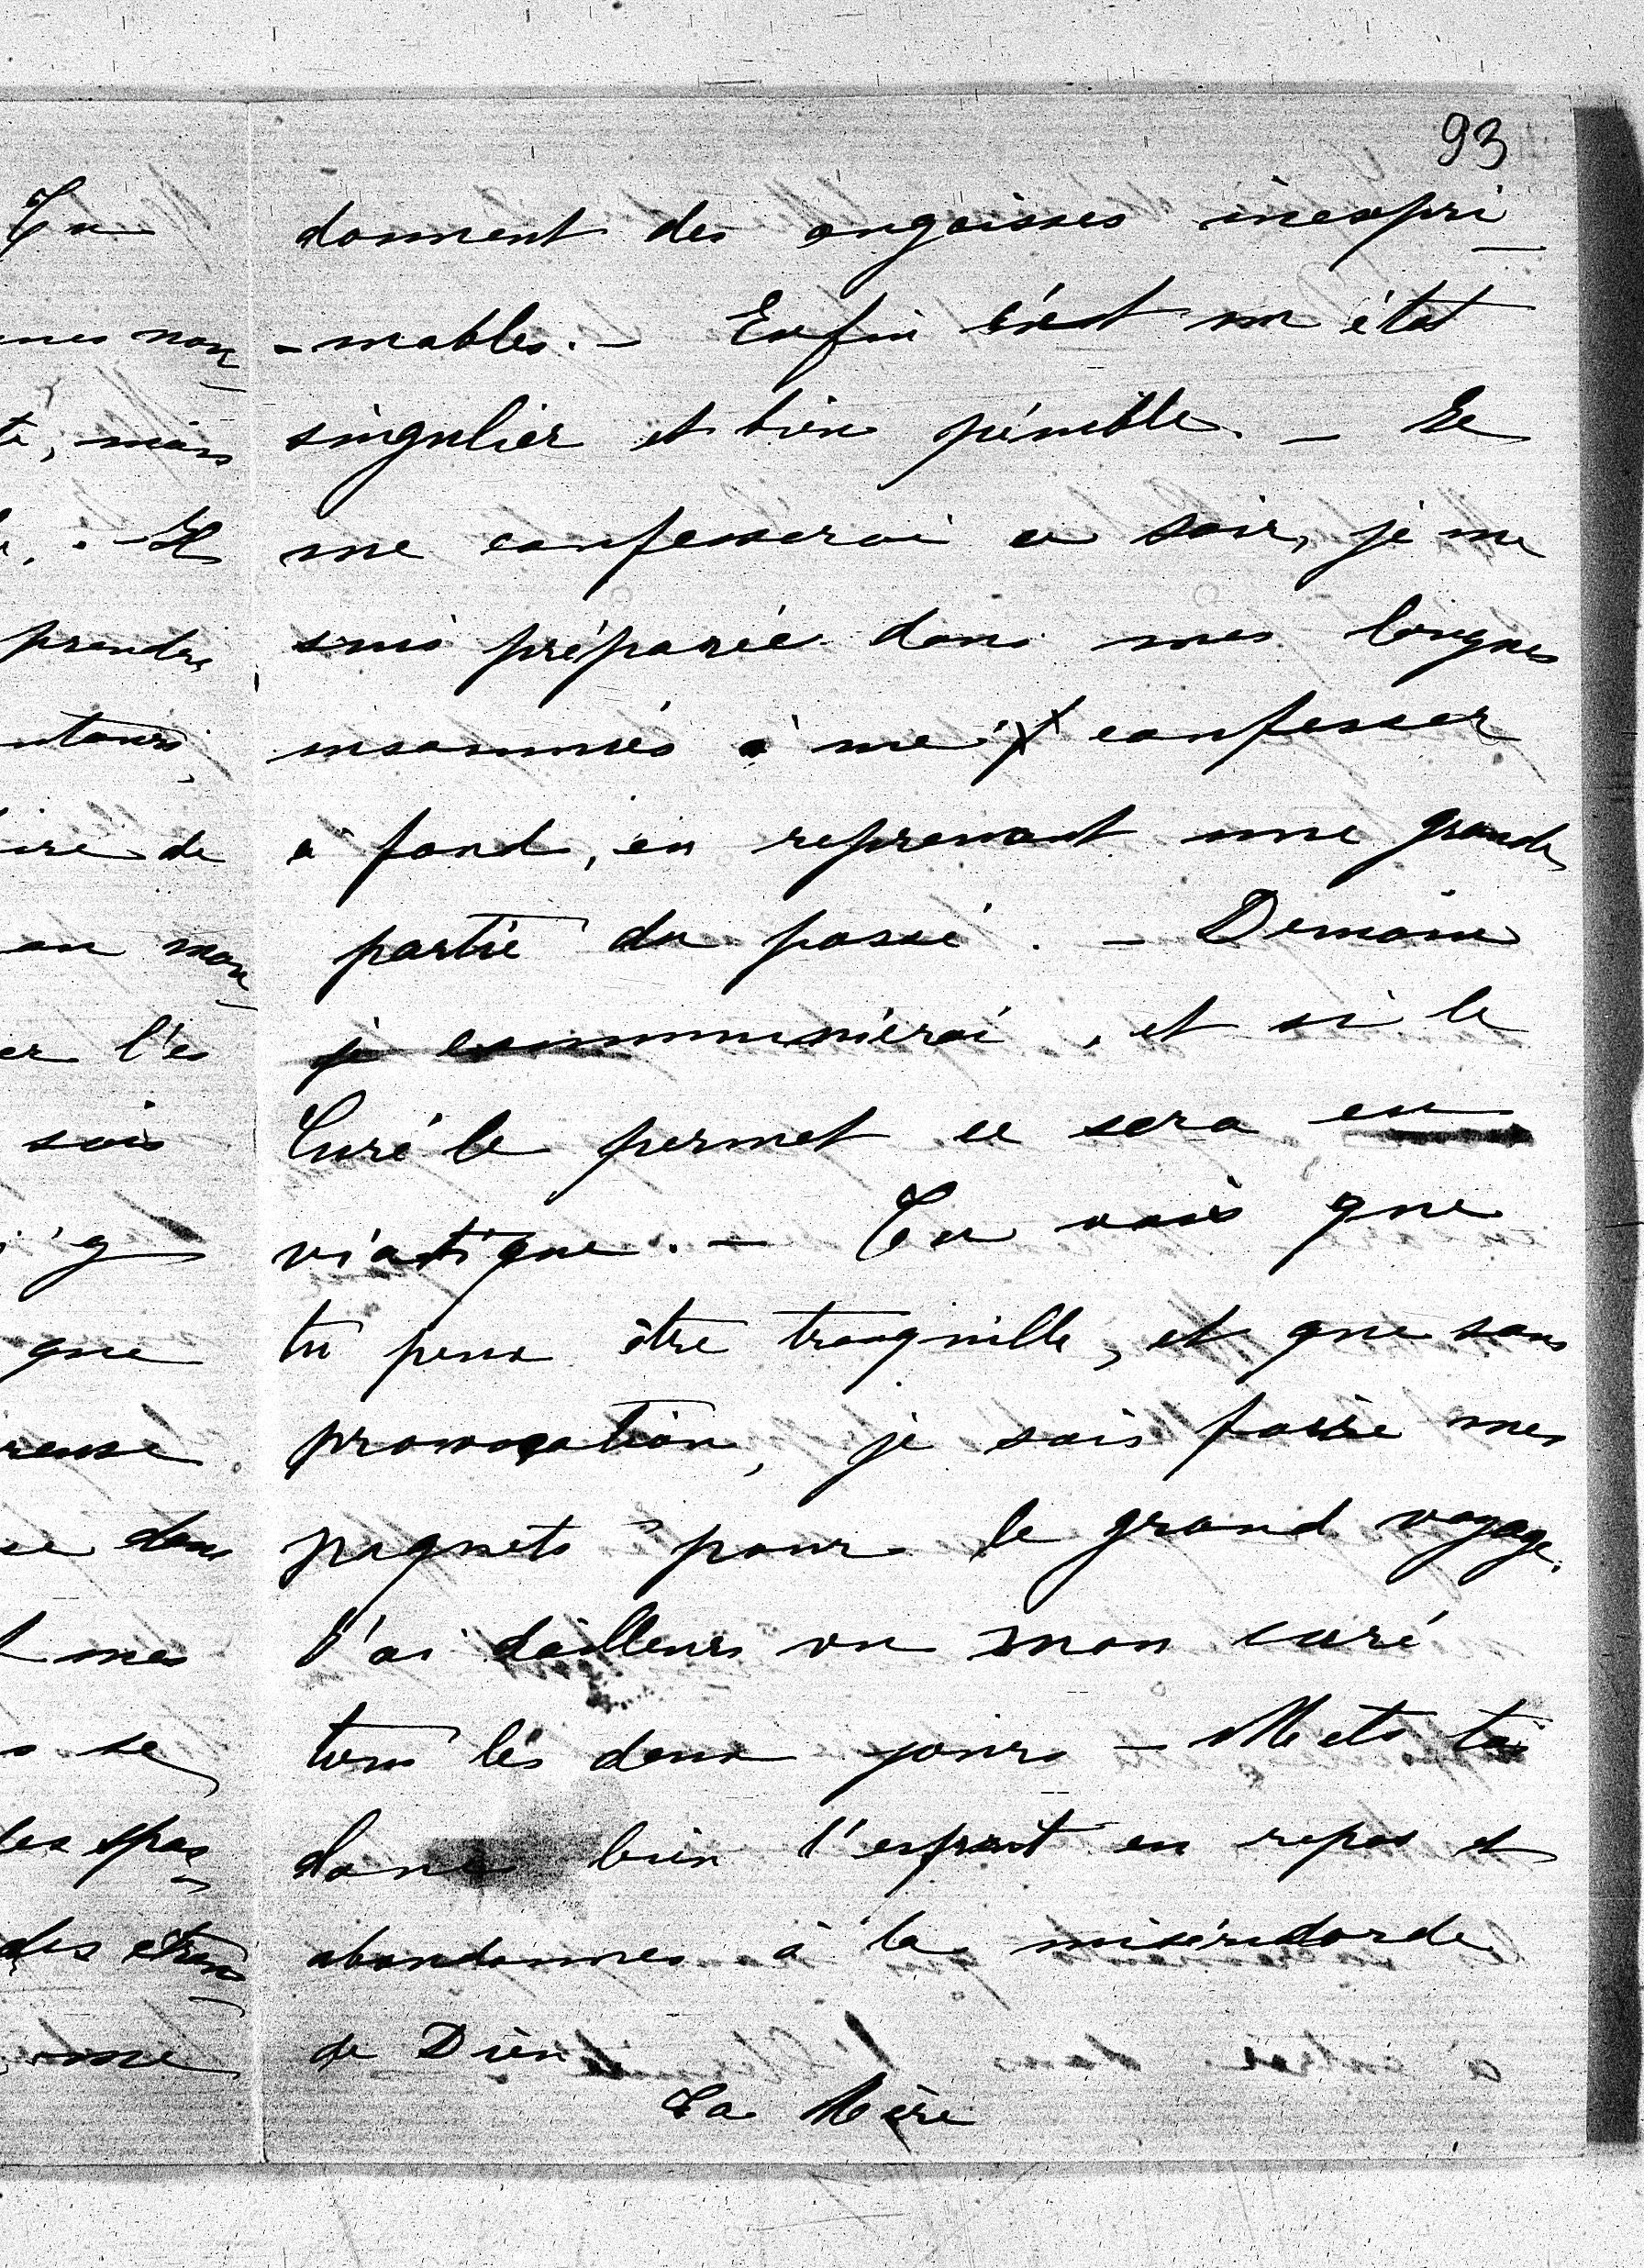 93
donnent des angoisses inexpri-
-mables. - Enfin c'est un état
singulier et bien pénible. - Je
me confesserai ce soir, je me
suis préparée dans mes longues
insomnies à me confesser
à fond, en reprenant une grande
partie du passé. - Demain
je communierai, et si le
Curé le permet ce sera en
viatique. - Tu vois que
tu peux être tranquille, et que sans
provocation, je sais faire mes
paquets pour le grand voyage.
J'ai d'ailleurs vu mon curé
tous les deux jours - Mets toi
donc bien l'esprit en repos et
abandonnes à la miséricorde
de Dieu
Ta Mère
Tu
mais
prendre
ire de
er l'es
sois
que
dans
mes
se
me